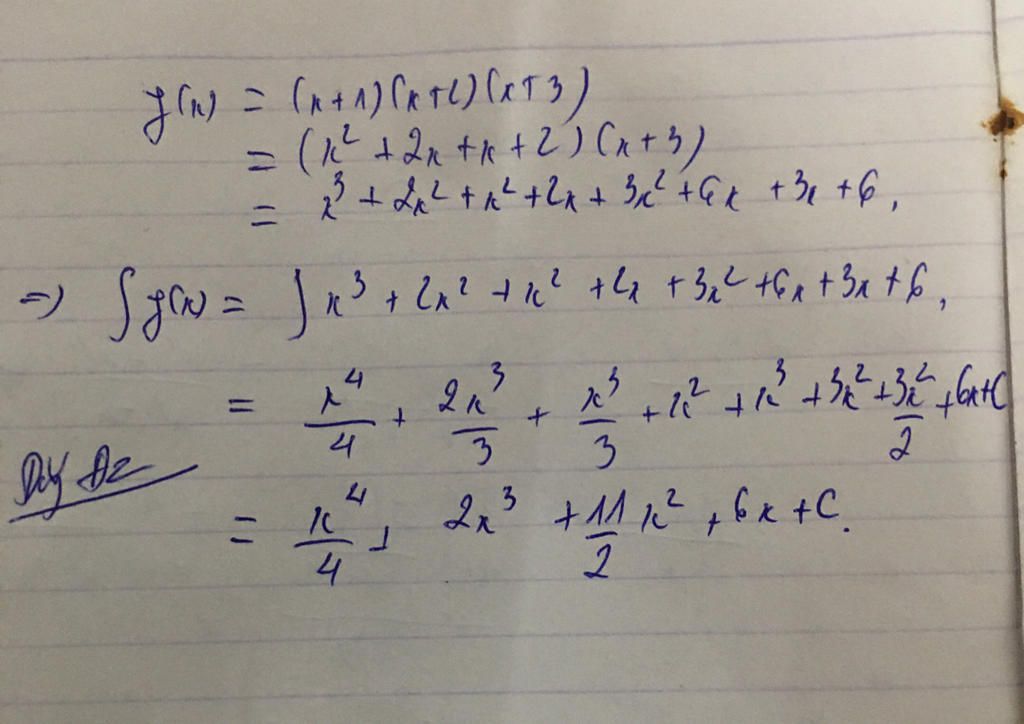 y(x) = (x+1)(x+2)(x+3)
= (x² + 2x + x + 2)(x+3)
= x³ + 2x² + x² + 2x + 3x² + 6x + 3x + 6,
=) ∫y(x) = ∫x³ + 2x² + x² + 2x + 3x² + 6x + 3x + 6,
= x⁴/4 + 2x³/3 + x³/3 + x² + x³ + 3x² + 3x²/2 + 6x+C
= x⁴/4 + 2x³ + 11/2 x² + 6x + C.